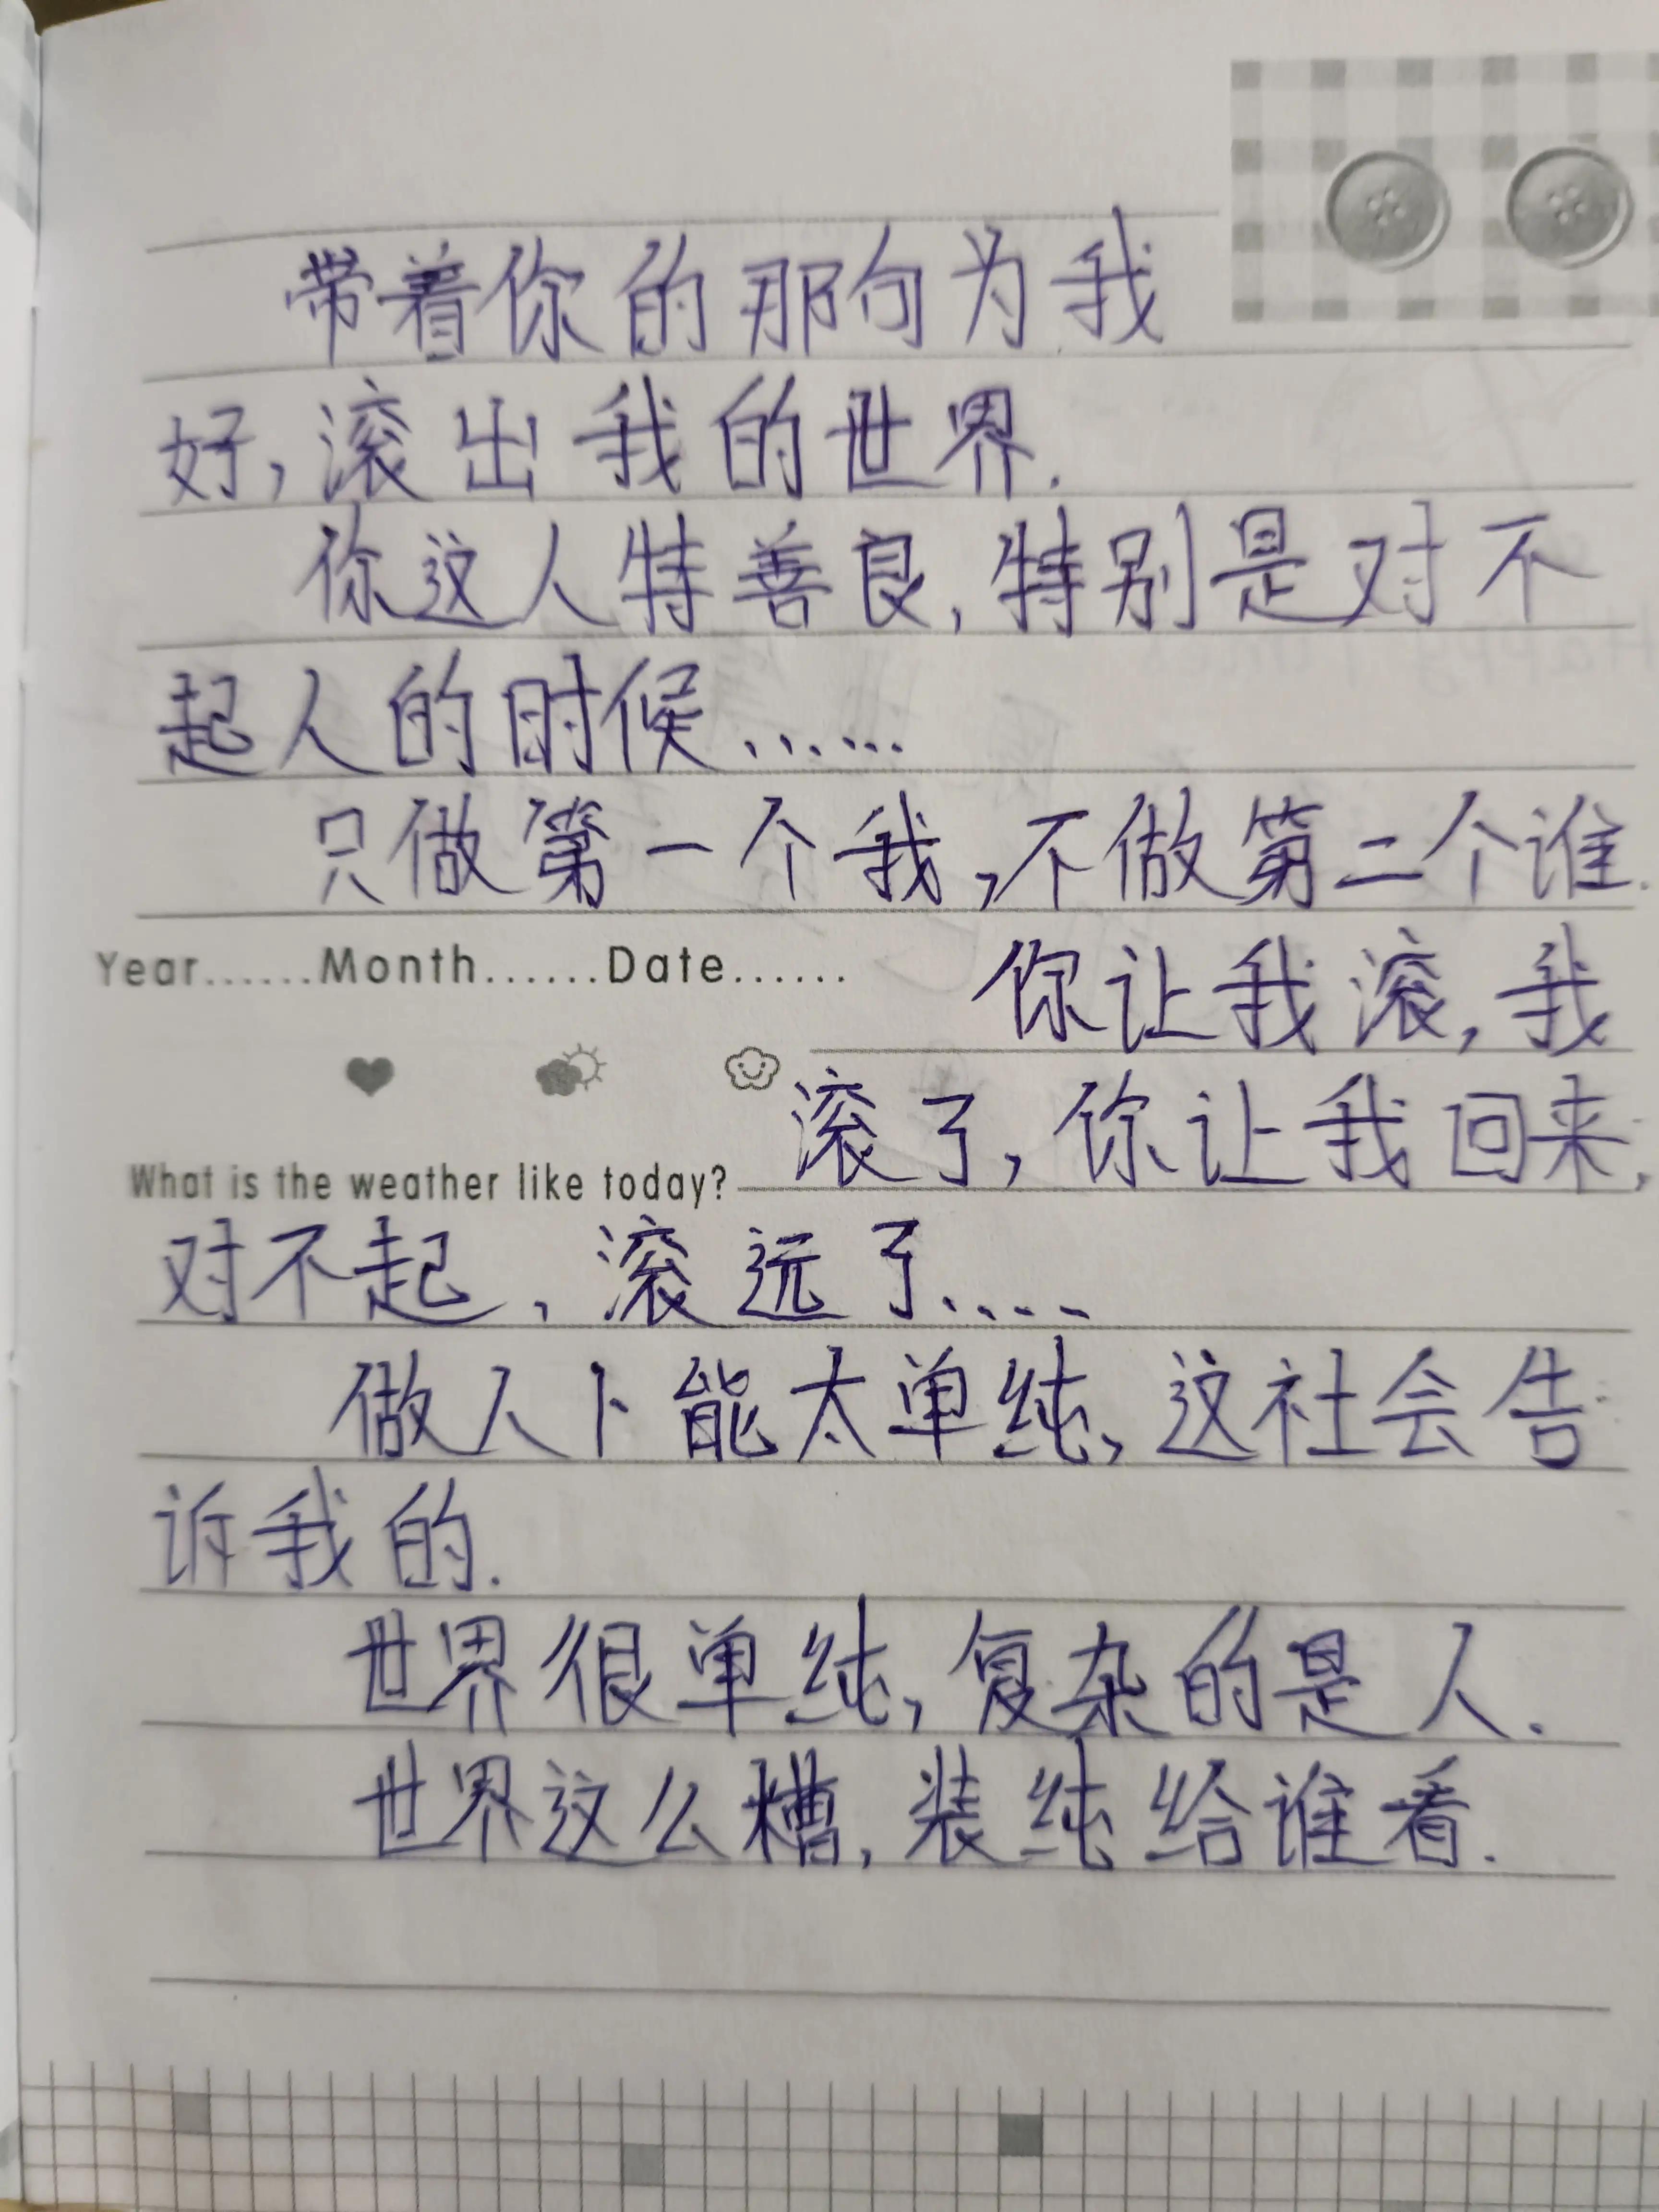 带着你的那句为我
好,滚出我的世界.
你这人特善良,特别是对不
起人的时候......
只做第一个我,不做第二个谁.
Year......Month......Date......
你让我滚,我
滚了,你让我回来,
What is the weather like today?
对不起,滚远了....
做人卜能太单纯,这社会告
诉我的.
世界很单纯,复杂的是人.
世界这么糟,装纯给谁看.